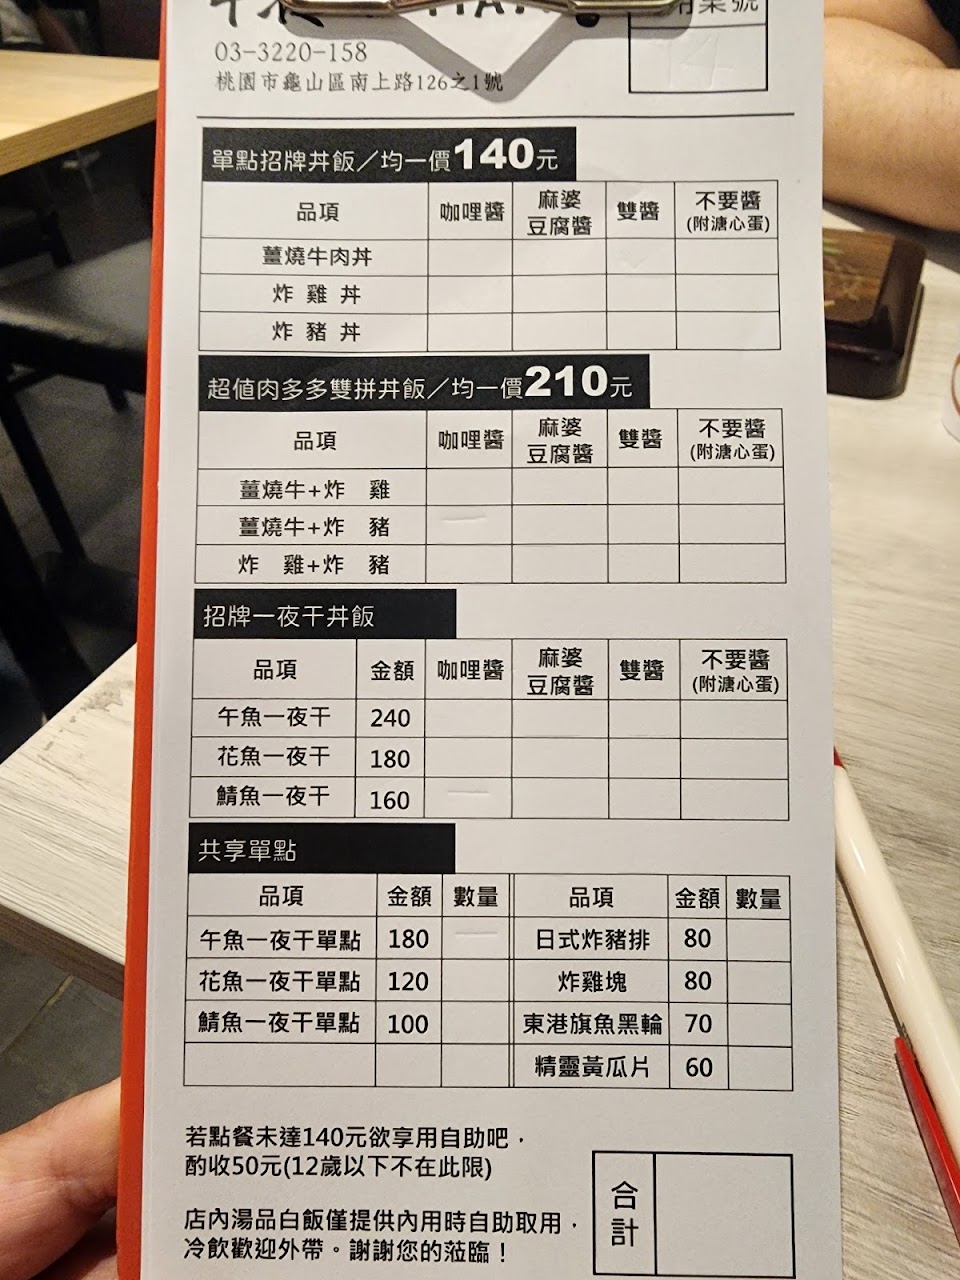 03-3220-158
桃園市龜山區南上路126之1號
14
單點招牌丼飯／均一價140元
品項 咖哩醬 麻婆豆腐醬 雙醬 不要醬(附溏心蛋)
薑燒牛肉丼
炸 雞 丼
炸 豬 丼
超值肉多多雙拼丼飯／均一價210元
品項 咖哩醬 麻婆豆腐醬 雙醬 不要醬(附溏心蛋)
薑燒牛+炸 雞
薑燒牛+炸 豬
炸 雞+炸 豬
招牌一夜干丼飯
品項 金額 咖哩醬 麻婆豆腐醬 雙醬 不要醬(附溏心蛋)
午魚一夜干 240
花魚一夜干 180
鯖魚一夜干 160
共享單點
品項 金額 數量 品項 金額 數量
午魚一夜干單點 180 日式炸豬排 80
花魚一夜干單點 120 炸雞塊 80
鯖魚一夜干單點 100 東港旗魚黑輪 70
精靈黃瓜片 60
若點餐未達140元欲享用自助吧，
酌收50元(12歲以下不在此限)
店內湯品白飯僅提供內用時自助取用，
冷飲歡迎外帶。謝謝您的蒞臨！
合計